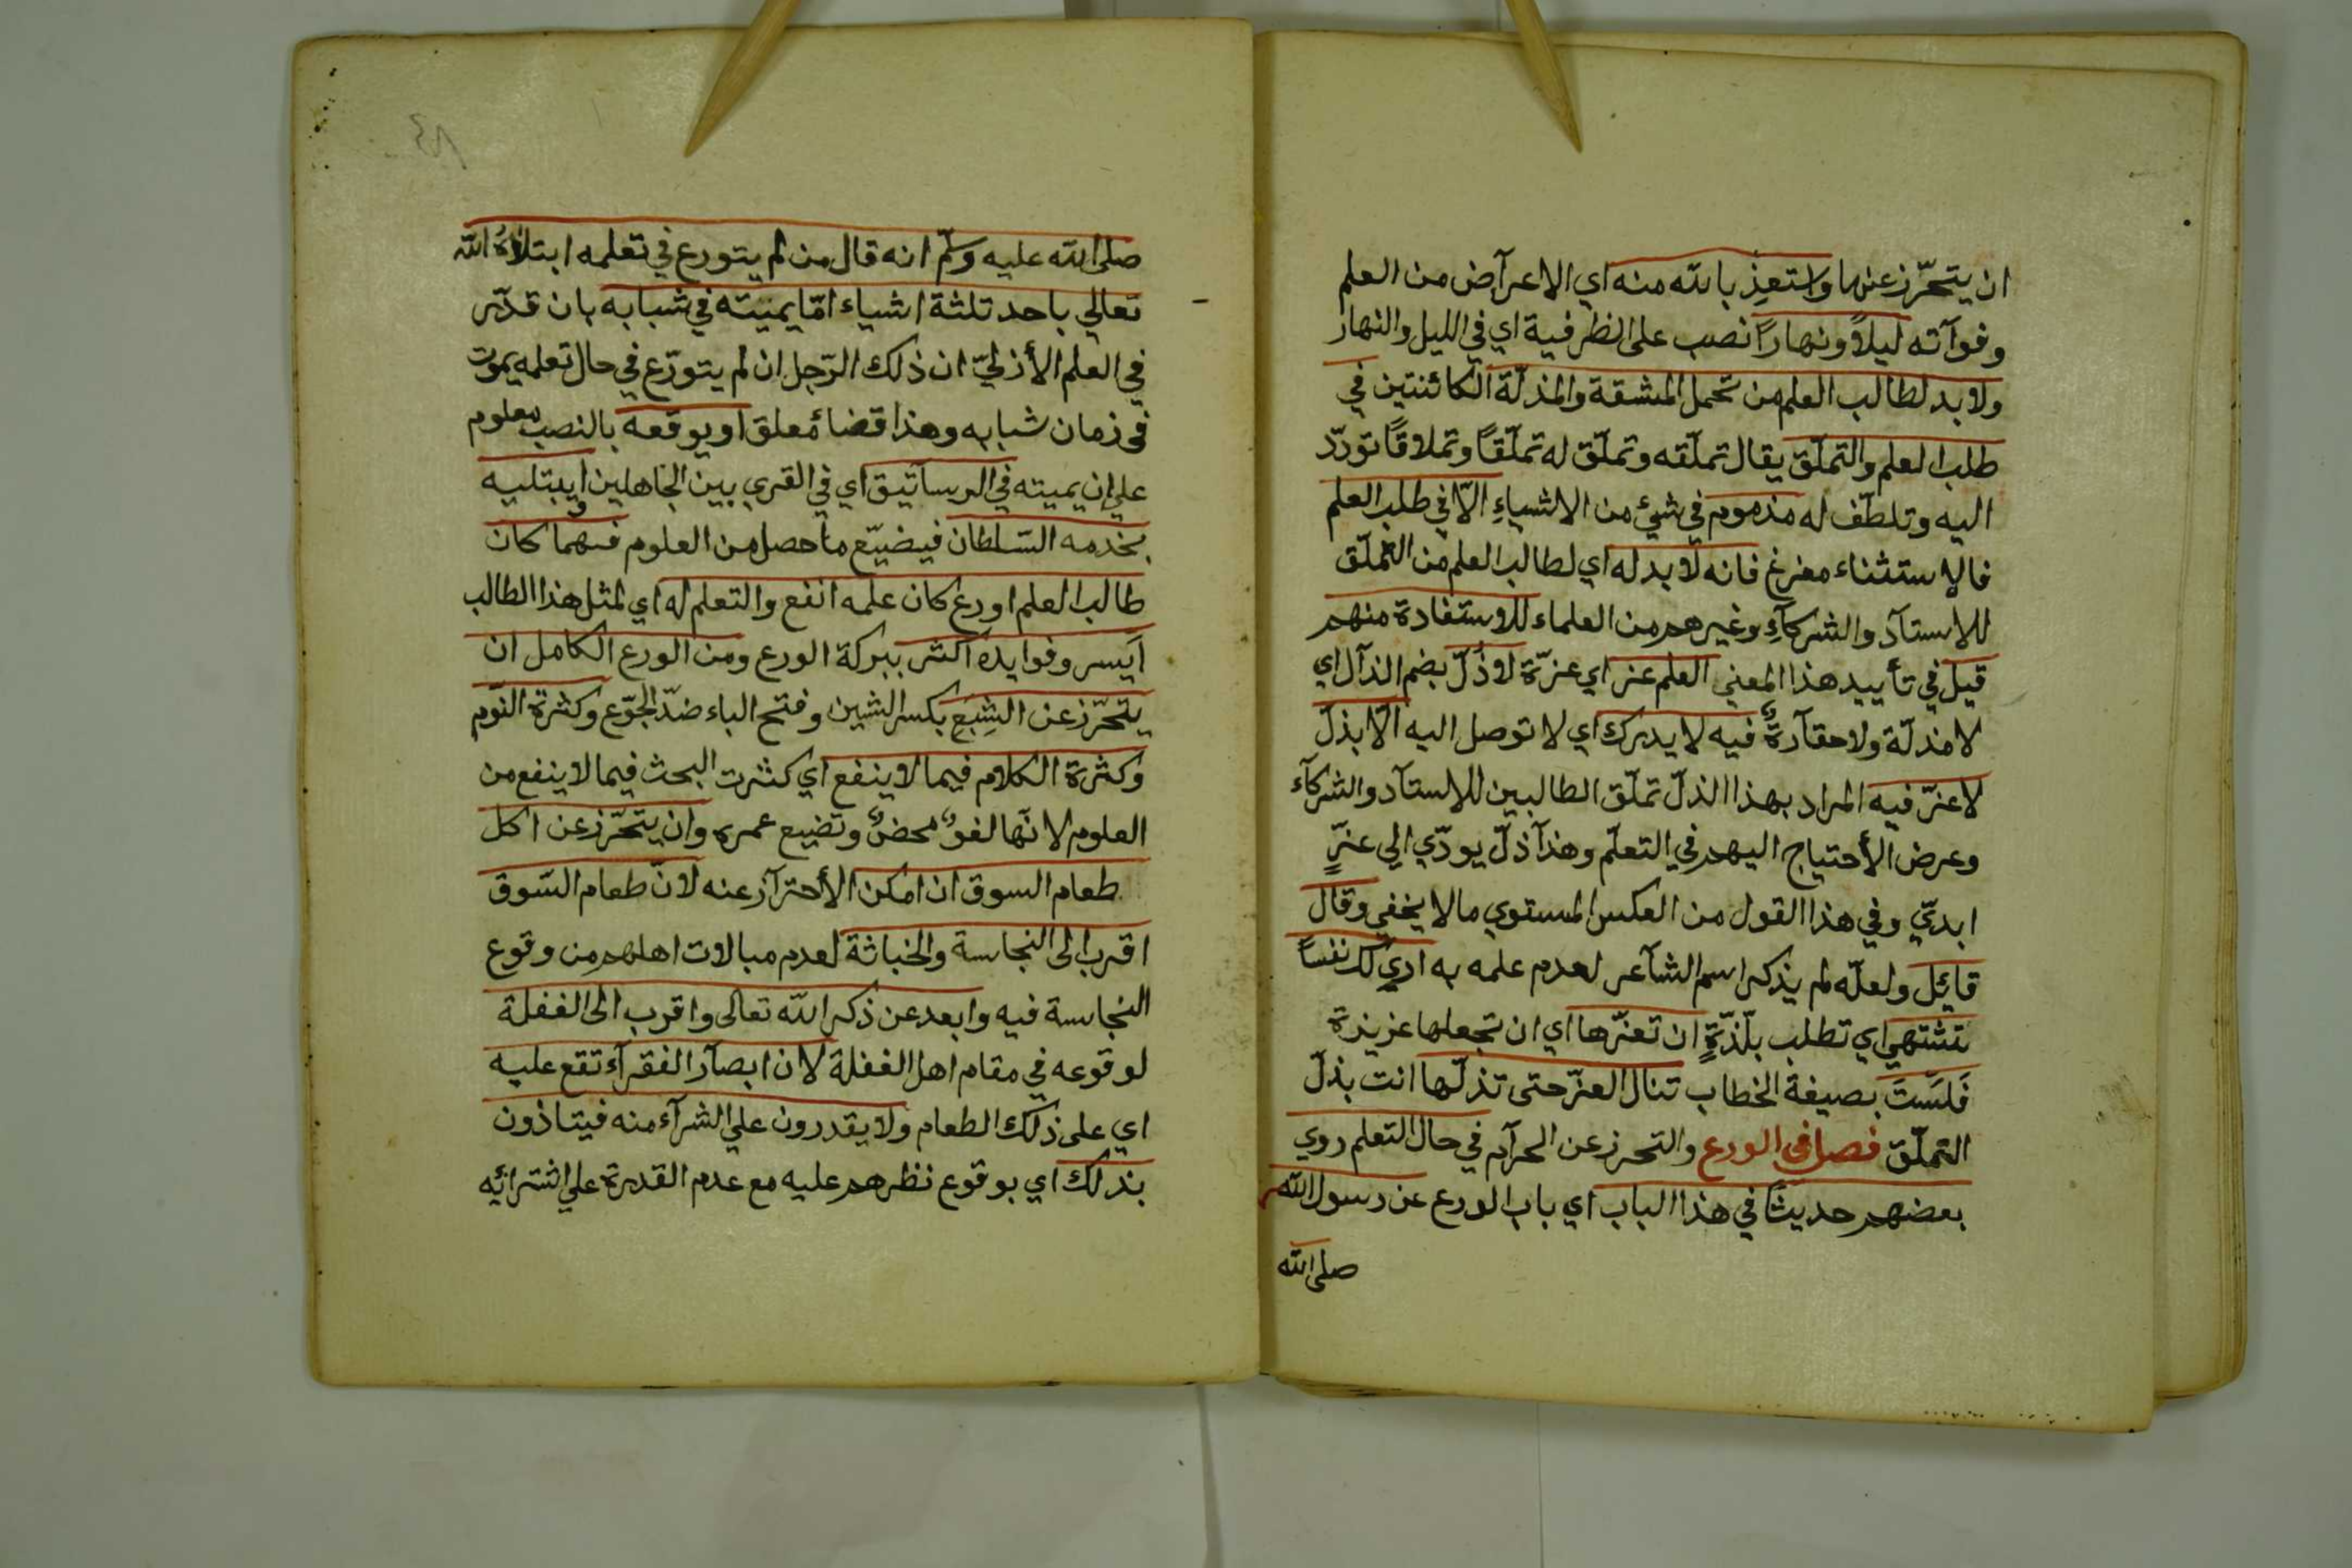 ان يتحرّز عنها واستعذ بالله منه اي الاعرآض من العلم
وفوآته ليلاً ونهاراً نصب على الظرفية اي في الليل والنهار
ولا بد لطالب العلم من تحمل المشقة والمذلّة الكائنتين في
طلب العلم والتملّق يقال تملّقه وتملّق له تملّقاً وتملاقاً تودّد
اليه وتلطّف له مذموم في شئ من الاشياءِ الاّ في طلب العلم
فالاستثناء مفرغ فانه لا بد له اي لطالب العلم من التملّق
للاستآذ والشركآءِ وغيرهم من العلماء للاستفادة منهم
قيل في تأييد هذا المعني العلم عز اي عزّة لا ذُلّ بضم الذآل اي
لا مذلّة ولا حقآرةٌ فيه لا يدرك اي لا توصل اليه الّا بذلّ
لا عزّ فيه المراد بهذا الذلّ تملّق الطالبين للاستآد والشركآء
وعرض الأحتياج اليهم في التعلّم وهذآ ذلّ يودّي الي عزّ
ابديّ وفي هذا القول من العكس المستوي ما لا يخفي وقال
قائل ولعلّه لم يذكر اسم الشآعر لعدم علمه به اري لك نفساً
تشتهي اي تطلب بلّذّةٍ ان تعزّها اي ان تجعلها عزيزة
فَلَستَ بصيغة الخطاب تنال العزّ حتى تذلّها انت بذلّ
التملّق فصل في الورع والتحرز عن الحرآم في حال التعلم روي
بعضهم حديثًا في هذا الباب اي باب الورع عن رسول الله
صلى الله
صلى الله عليه وسلّم انه قال من لم يتورع في تعلمه ابتلاهُ الله
تعالي باحد ثلثة اشياء امّا يميته في شبابه بان قدّر
في العلم الأزليّ ان ذلك الرّجل ان لم يتورّع في حال تعلمه يموت
في زمان شبابه وهذا قضاءٌ معلق او يوقعه بالنصب معلوم
علي ان يميته في الرساتيق اي في القري بين الجاهلين او يبتليه
بخدمه السّلطان فيضيّع ما حصل من العلوم فمهما كان
طالب العلم اورع كان علمه انفع والتعلم له اي لمثل هذا الطالب
اَيسر وفوايده اكثر ببركة الورع ومن الورع الكامل ان
يتحرّز عن الشِبَعِ بكسر الشين وفتح الباء ضدّ الجوّع وكثرة النوّم
وكثرة الكلام فيما لا ينفع اي كثرت البحث فيما لا ينفع من
العلوم لانّها لغوٌ محضٌ وتضيع عمره وان يتحرّز عن اكل
طعام السوق ان امكن الأحترآز عنه لانّ طعام السّوق
اقرب الى النجاسة والخباثة لعدم مبالات اهلهم من وقوع
النجاسة فيه وابعد عن ذكر الله تعالى واقرب الى الغفلة
لوقوعه في مقام اهل الغفلة لان ابصآر الفقرآء تقع عليه
اي على ذلك الطعام ولا يقدرون علي الشرآء منه فيتاذون
بذلك اي بوقوع نظرهم عليه مع عدم القدرة علي اشترائه